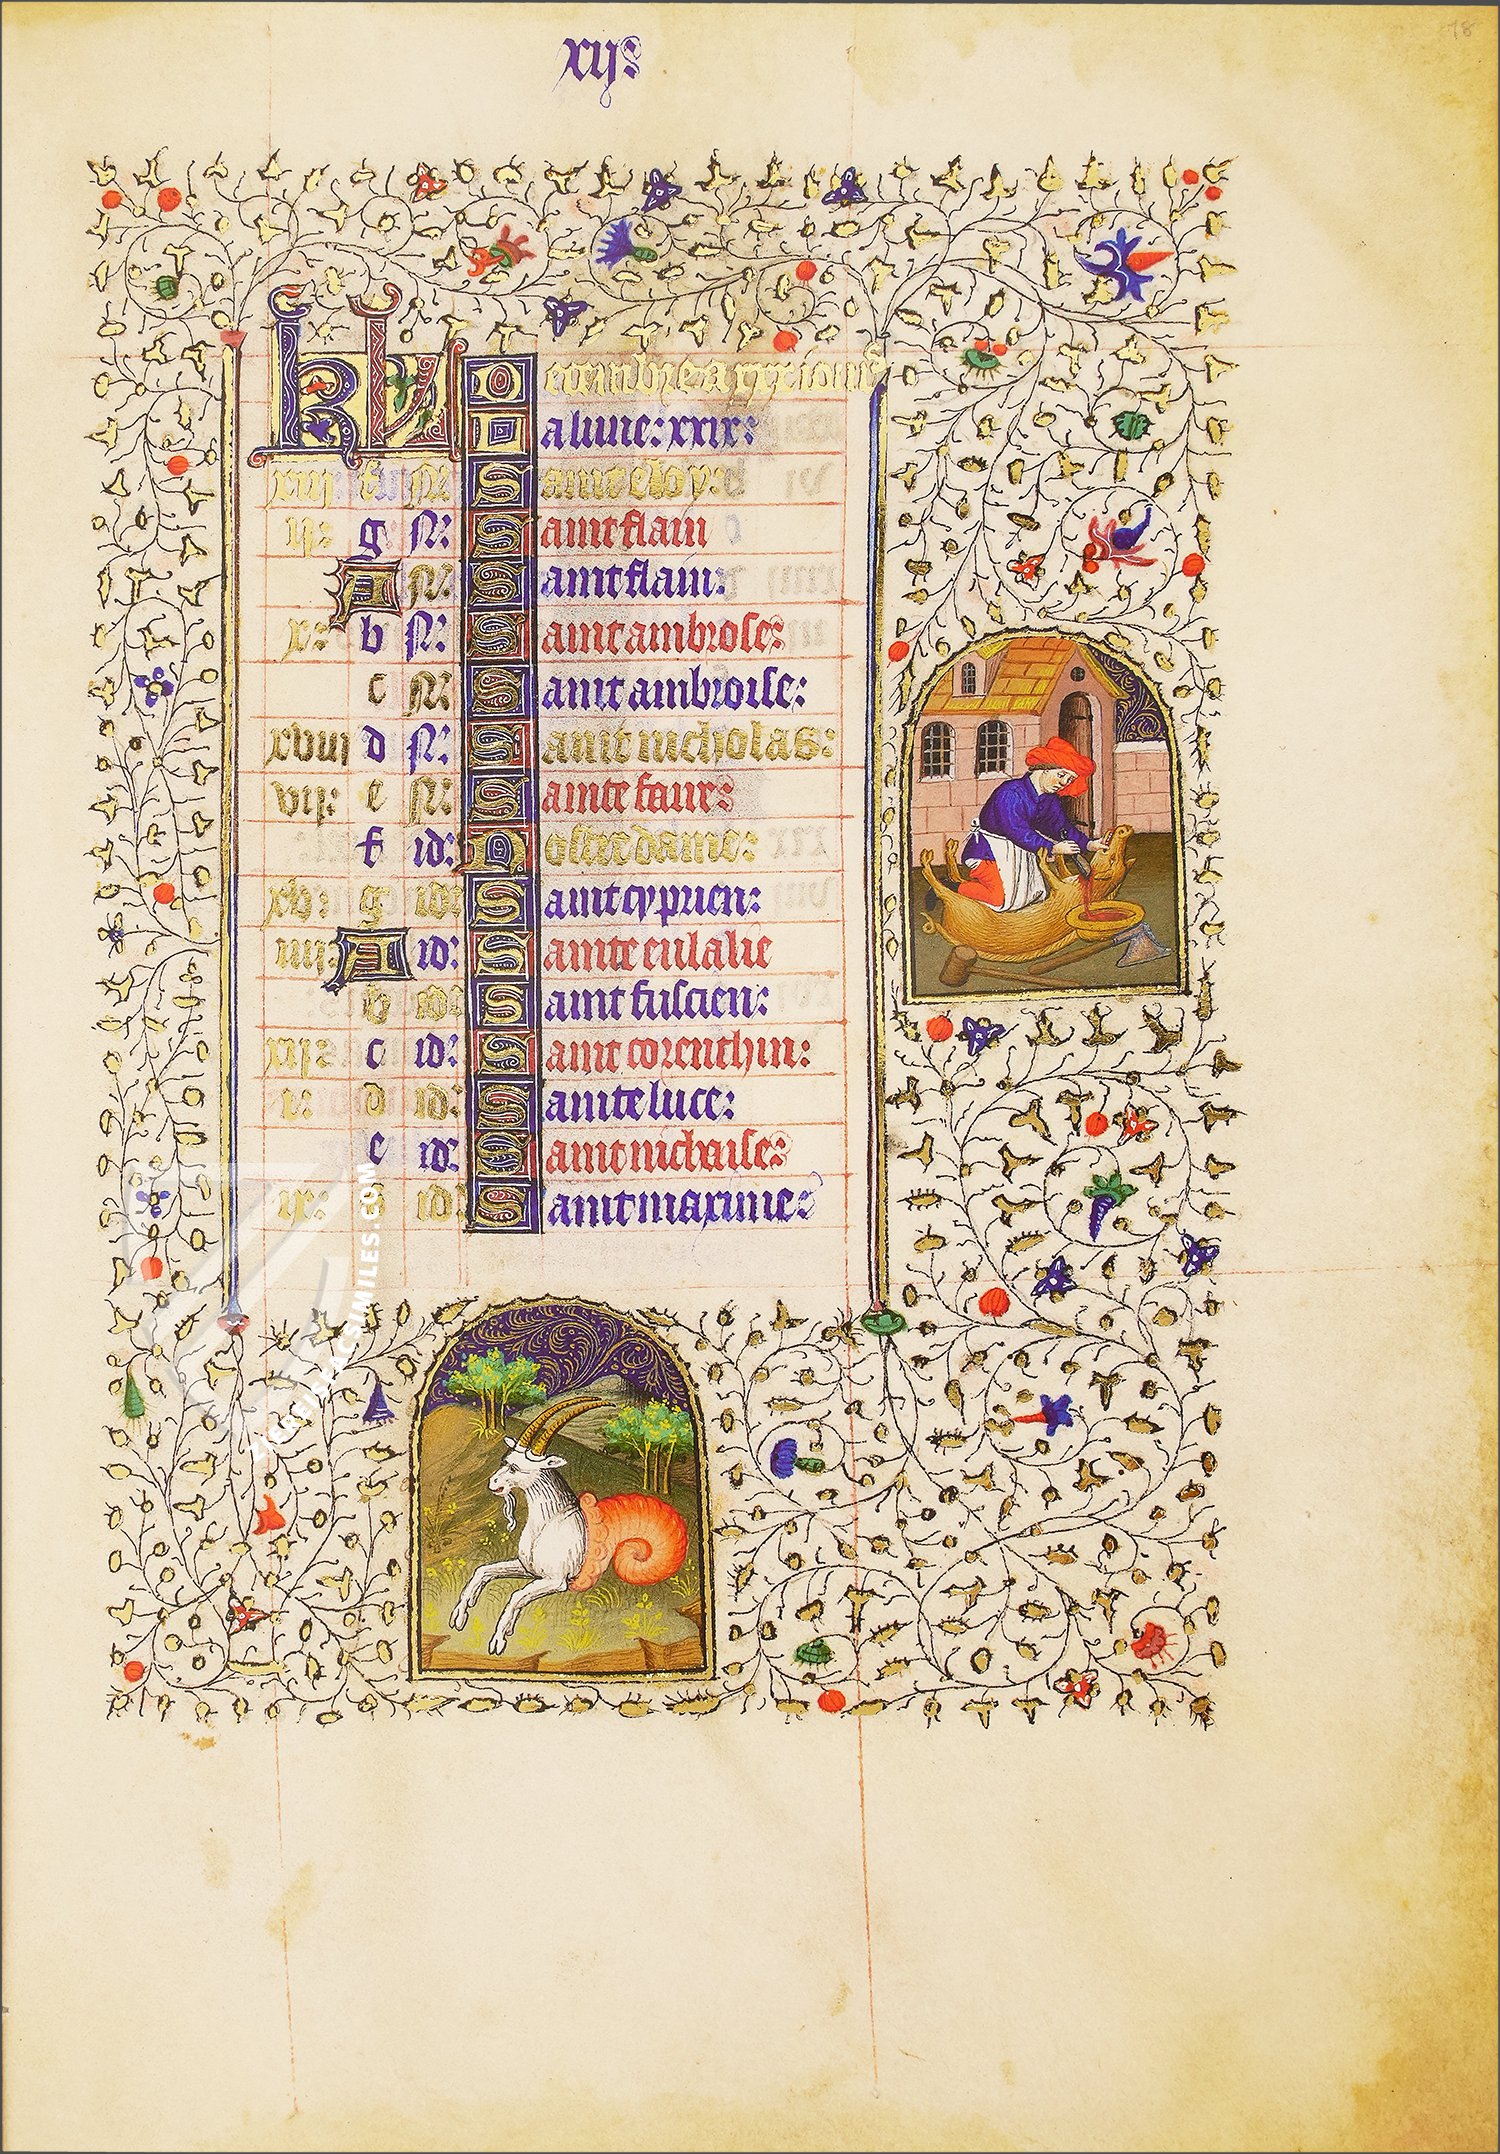 xij:
18
KL Decembre a xxxi iours
La lune: xxix:
xiij f N: Saint eloy:
ij: g N: Saint flam
A N: Saint flam:
x: b N: Saint ambrose:
c N: Saint ambroise:
xviij d N: Saint nicholas:
vij: e N: Sainte faure:
f id: Nostre dame:
xv: g id: Saint cyprien:
iiij: A id: Sainte eulalie
b id: Saint fuscien:
xij: c id: Saint corenthin:
i: d id: Sainte luce:
e id: Saint nichaise:
ix: f id: Saint maxime:
ZIEREIS FACSIMILES.COM